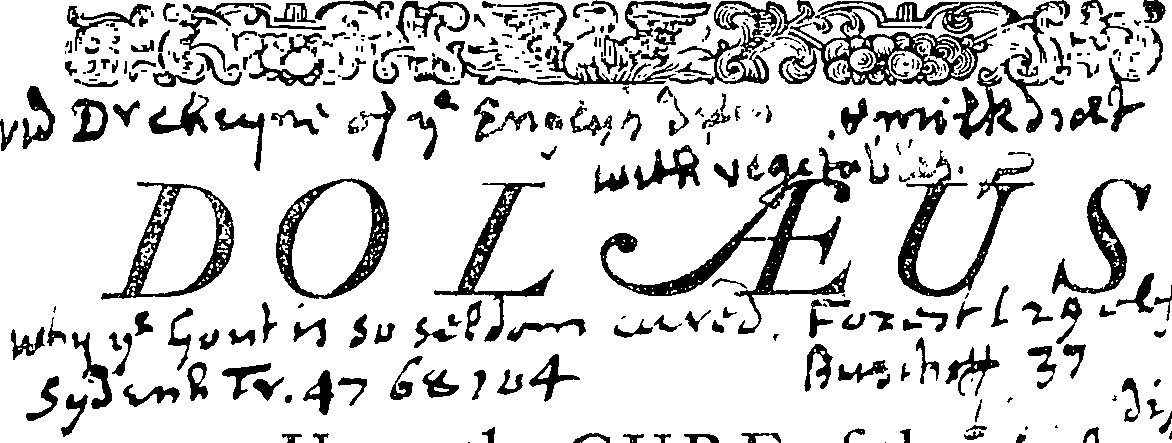 vid Dr cheyne of ye English & milk diet
with vegetables.
DOLÆUS
why ye Gout is so seldom cured. Forest l 29
Sydenh Tr. 47 68 104 37
CURE of the